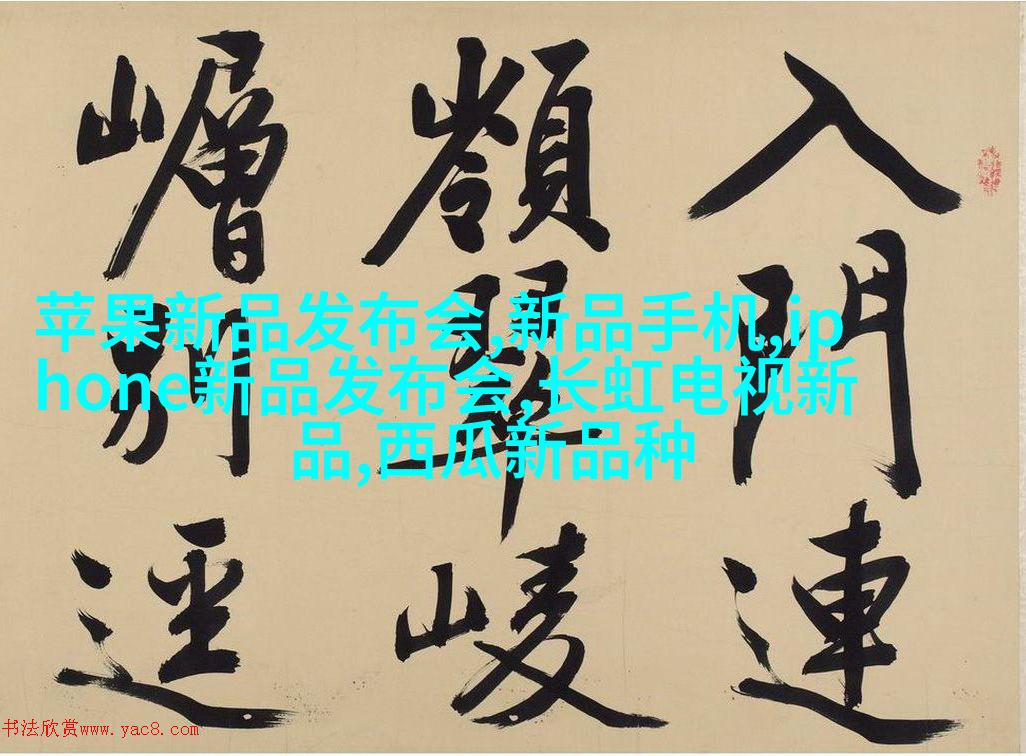 入門連
嶺翠崚
嶒別逕
苹果新品发布会,新品手机,ip
hone新品发布会,长虹电视新
品,西瓜新品种
书法欣赏www.yac8.com